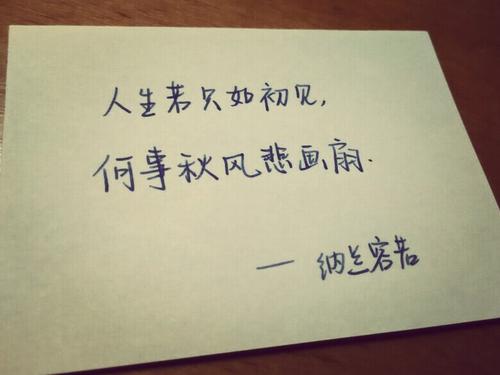 人生若只如初见,
何事秋风悲画扇.
— 纳兰容若